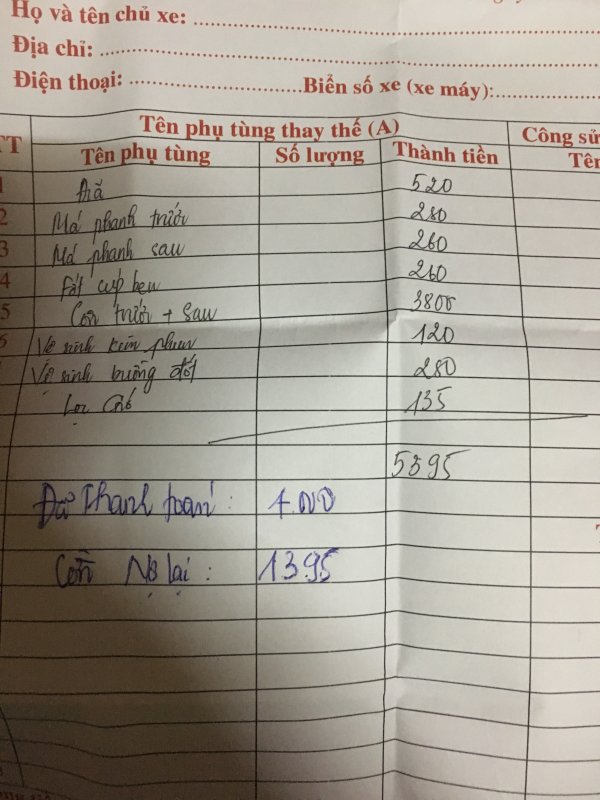 Họ và tên chủ xe:
Địa chỉ:
Điện thoại: Biển số xe (xe máy):
TT Tên phụ tùng thay thế (A) Công sử
Tên phụ tùng Số lượng Thành tiền Tên
1 520
2 Má phanh trước 280
3 Má phanh sau 260
4 260
5 Côn trước + sau 3800
6 Vệ sinh kim phun 120
Vệ sinh buồng đốt 280
Lọc gió 135
5395
Đã Thanh toán: 4.000
Còn Nợ lại: 1395